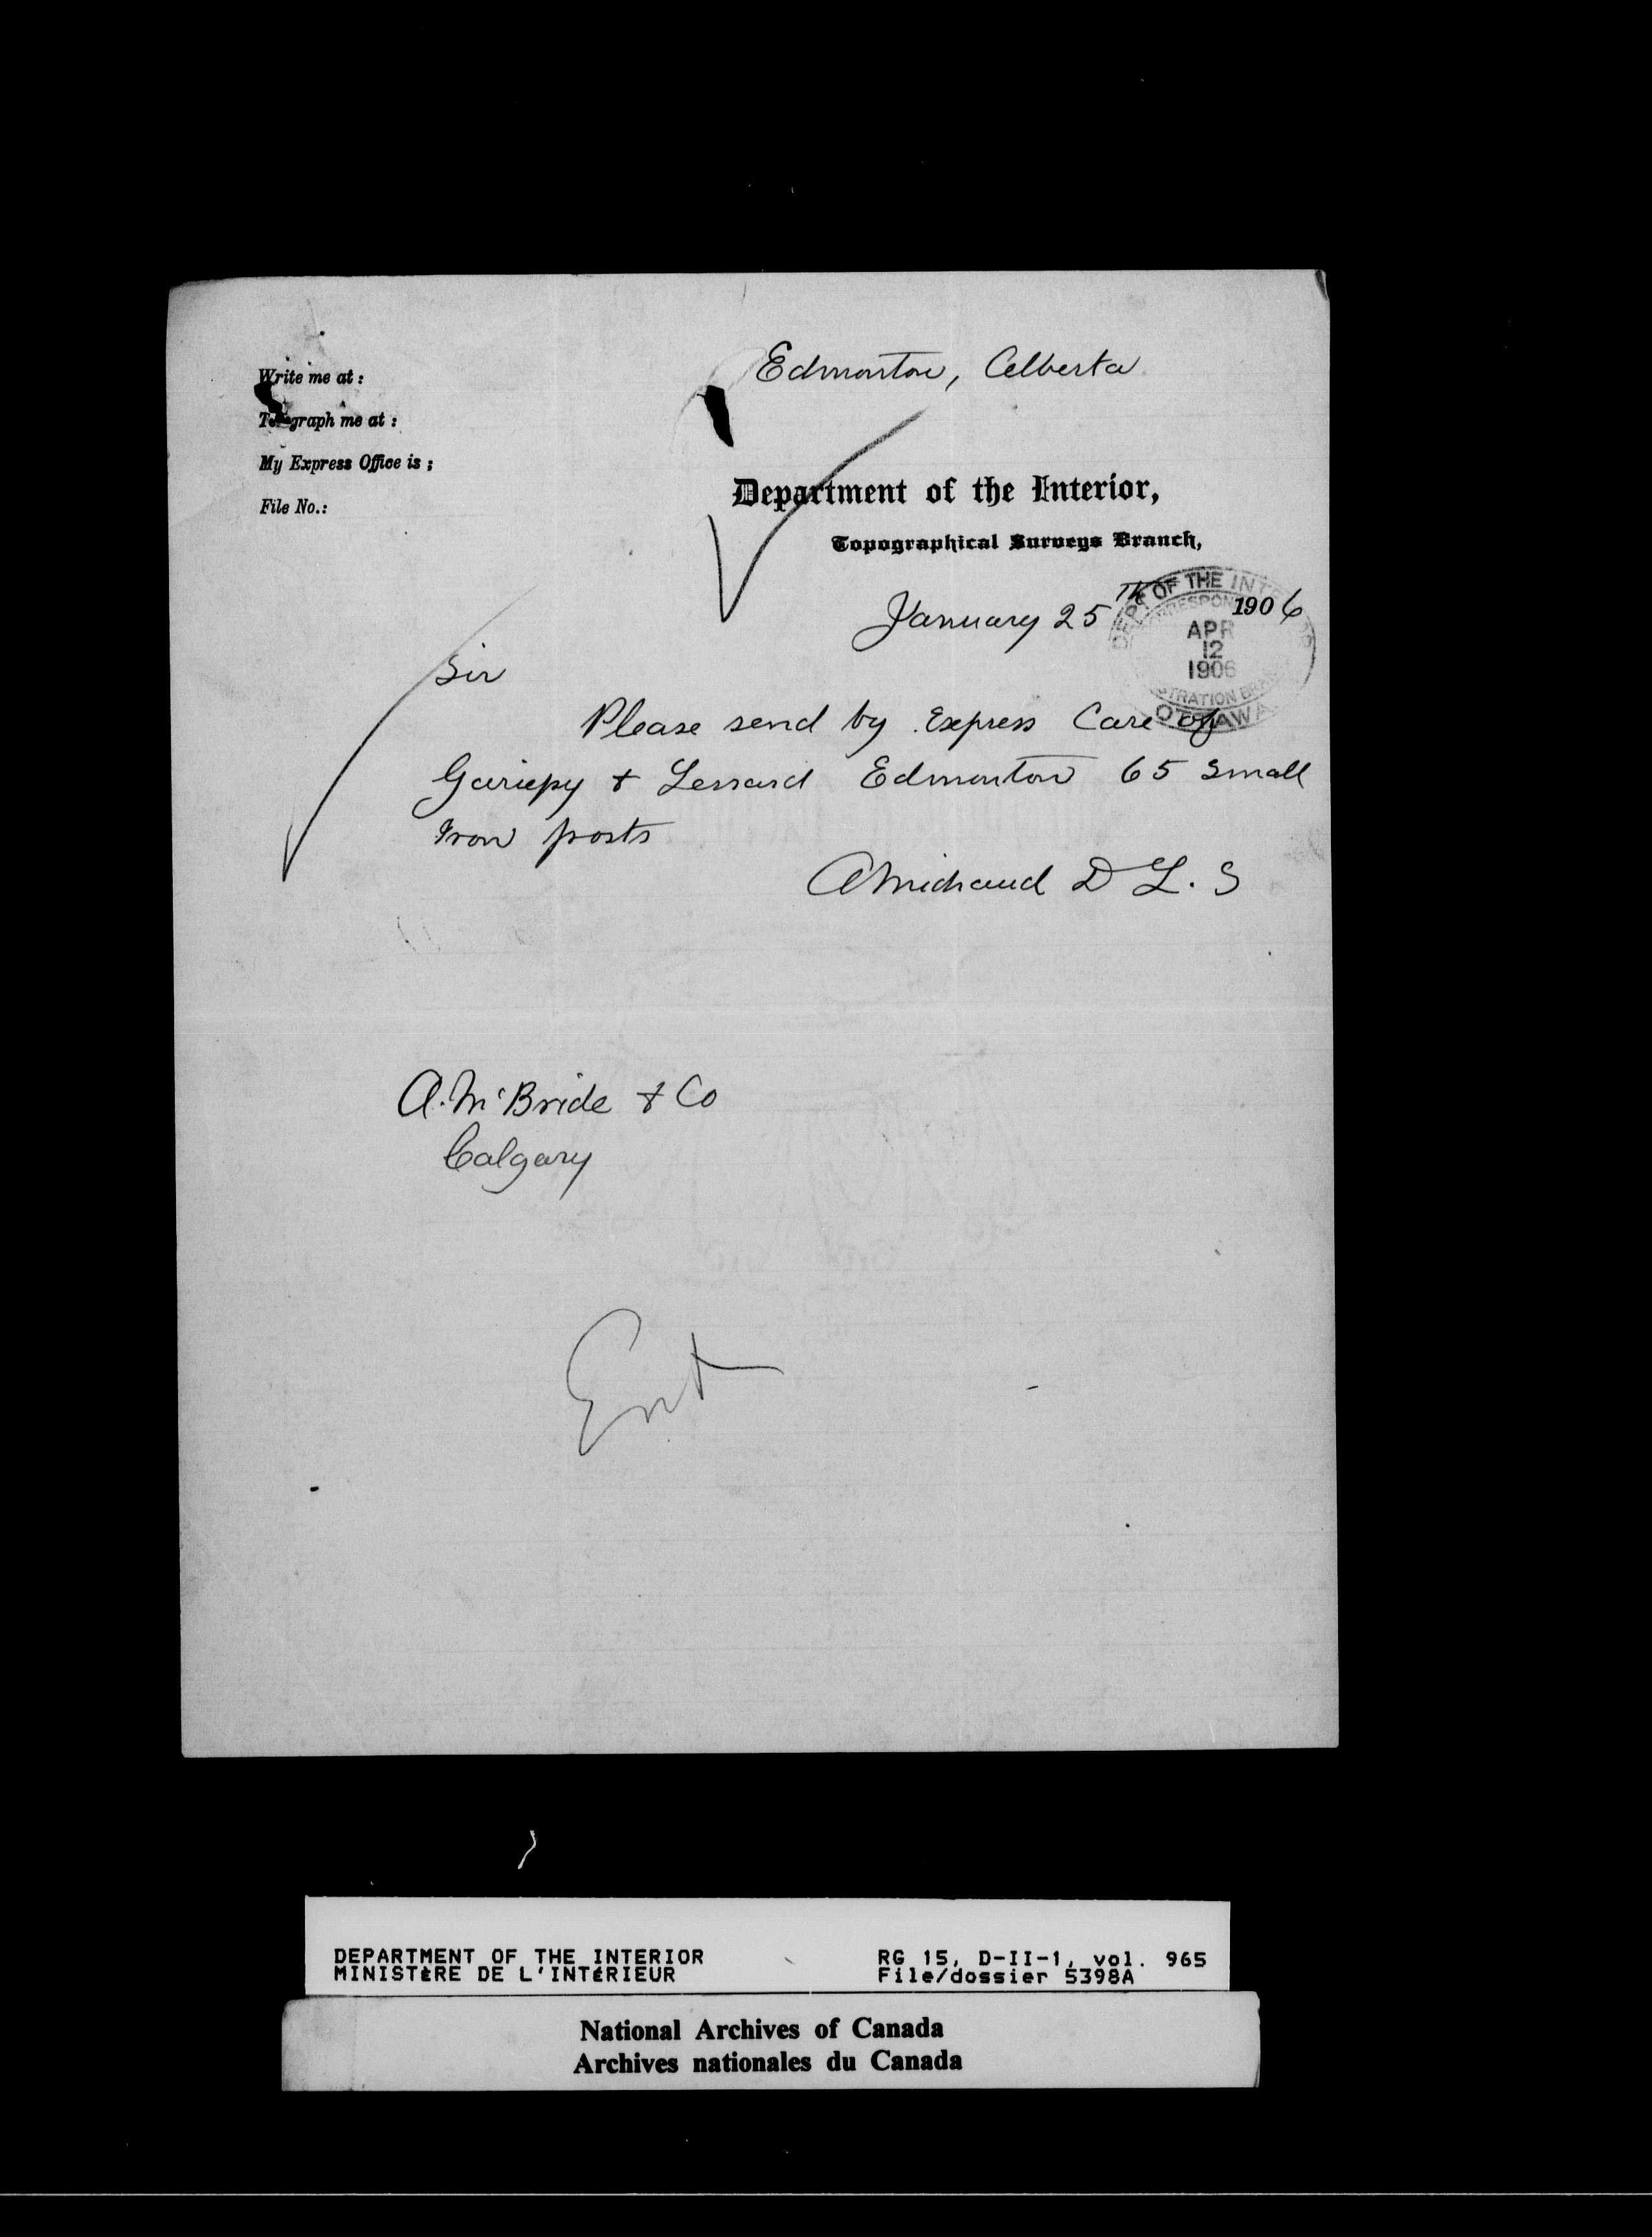 Edmonton, Alberta
Write me at :
Telegraph me at :
My Express Office is ;
File No.:
Department of the Interior,
Topographical Surveys Branch,
January 25th 1906
DEPT OF THE INT
APR
12
1906
OTTAWA
Sir
Please send by Express Care of
Gariepy & Lessard Edmonton 65 small
Iron posts
A Michaud D L. S
A. McBride & Co
Calgary
Ent
DEPARTMENT OF THE INTERIOR
MINISTÈRE DE L'INTÉRIEUR
RG 15, D-II-1, vol. 965
File/dossier 5398A
National Archives of Canada
Archives nationales du Canada